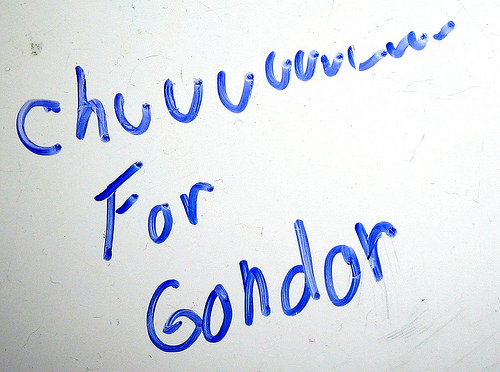 Chuuuuuuuuuuu
For
Gondor